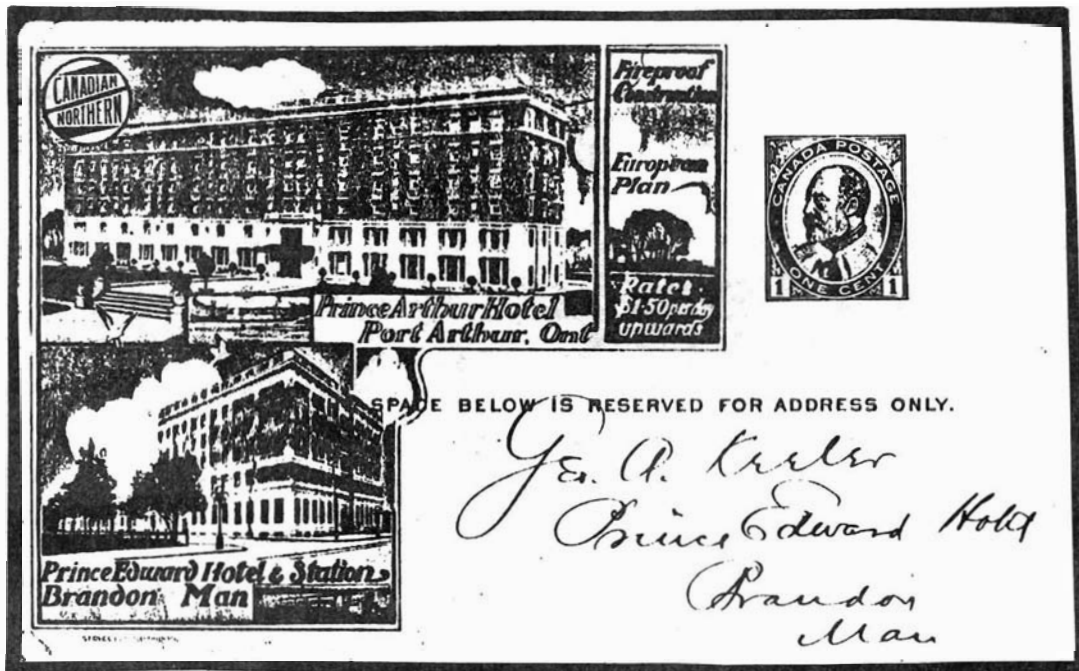 CANADIAN
NORTHERN
Fireproof
Construction
European
Plan
Rates.
$1.50 per day
upwards
Prince Arthur Hotel
Port Arthur, Ont
CANADA POSTAGE
ONE CENT
1 1
SPACE BELOW IS RESERVED FOR ADDRESS ONLY.
Geo. A. Keeler
Prince Edward Hotel
Brandon
Man
Prince Edward Hotel & Station
Brandon Man